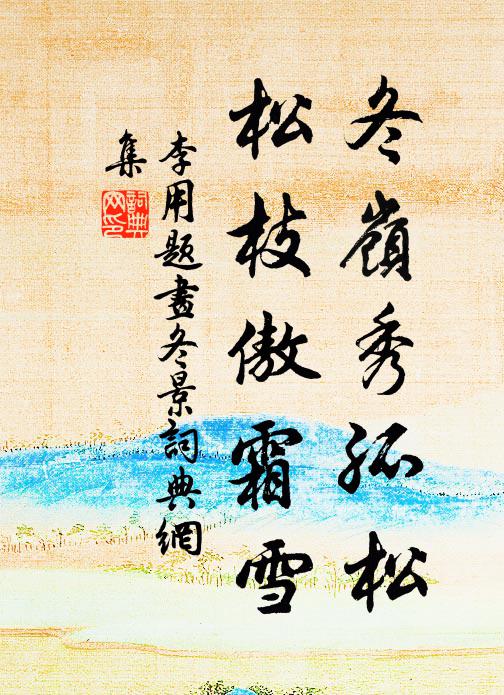 冬嶺秀孤松
松枝傲霜雪
李用題畫冬景詞典網
集
詞典
网印